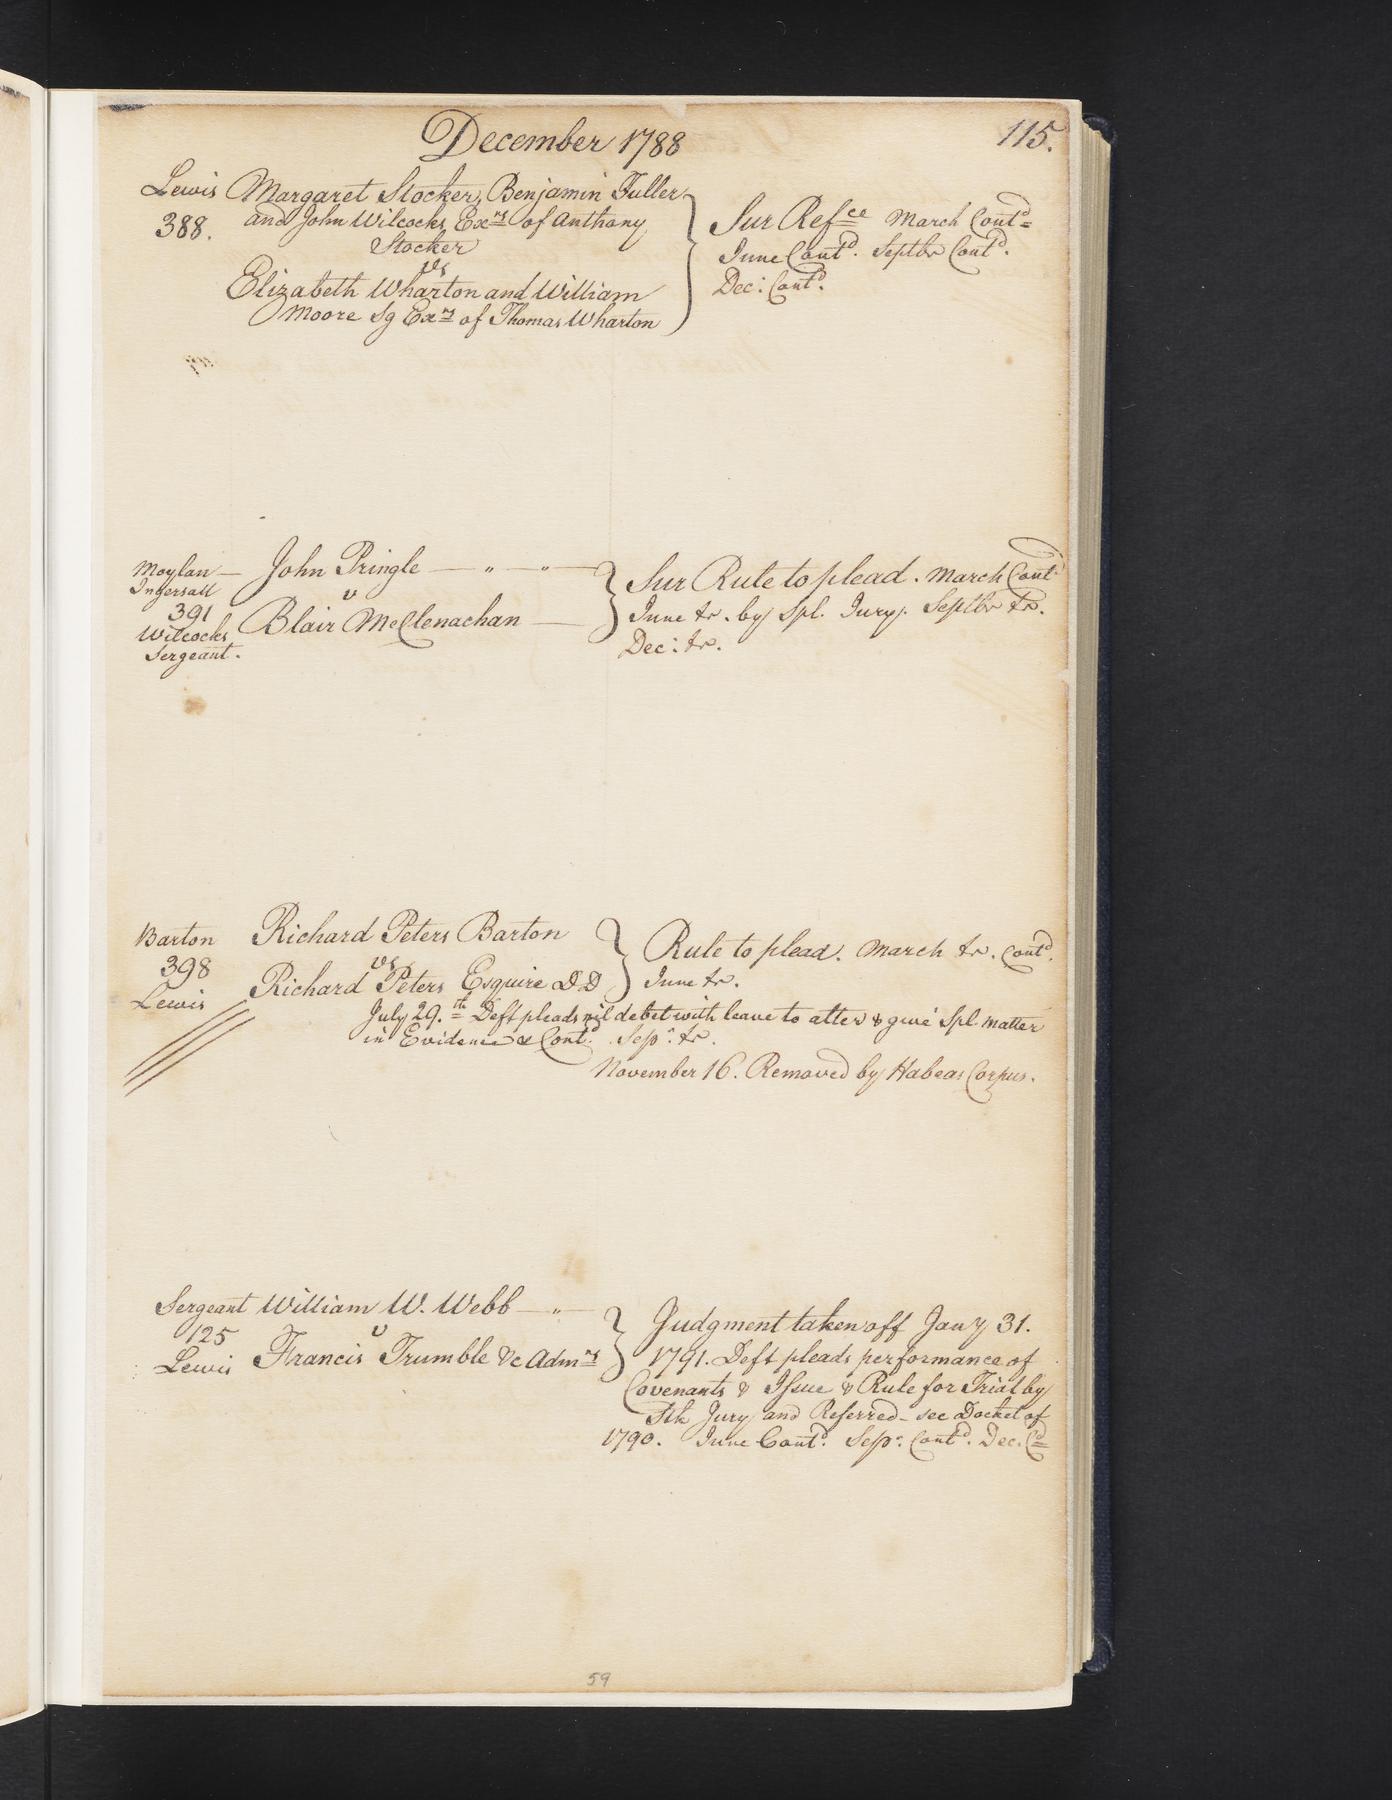 December 1788
115.
Lewis Margaret Stocker, Benjamin Fuller
388. and John Wilcocks Exrs of Anthony
Stocker
vs
Elizabeth Wharton and William
Moore Exrs of Thomas Wharton
Sur Refce March Contd
June Contd. Septbr Contd.
Dec: Contd.
Moylan — John Pringle — " — " —
Ingersoll
v
391
Wilcocks Blair McClenachan —
Sergeant.
Sur Rule to plead. March Contd
June tr. by Spl. Jury. Septbr tr.
Dec: tr.
Barton Richard Peters Barton
398
vs
Lewis Richard Peters Esquire
Rule to plead. March tr. Contd.
June tr.
July 29.th Deft pleads nil debet with leave to alter & give Spl. matter
in Evidence & Contd. Sepr: tr.
November 16. Removed by Habeas Corpus.
Sergeant William W. Webb — " —
125
v
Lewis Francis Trumble &c Admrs
Judgment taken off Jany 31.
1791. Deft pleads performance of
Covenants & Issue & Rule for Trial by
Jury and Referred - see Docket of
1790. June Contd. Sepr: Contd. Dec. Cd
59